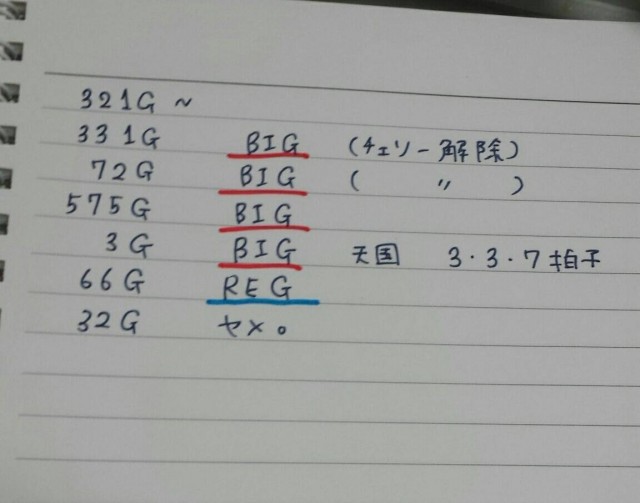 321G ~
331G BIG (チェリー解除)
72G BIG ( 〃 )
575G BIG
3G BIG 天国 3・3・7拍子
66G REG
32G ヤメ。